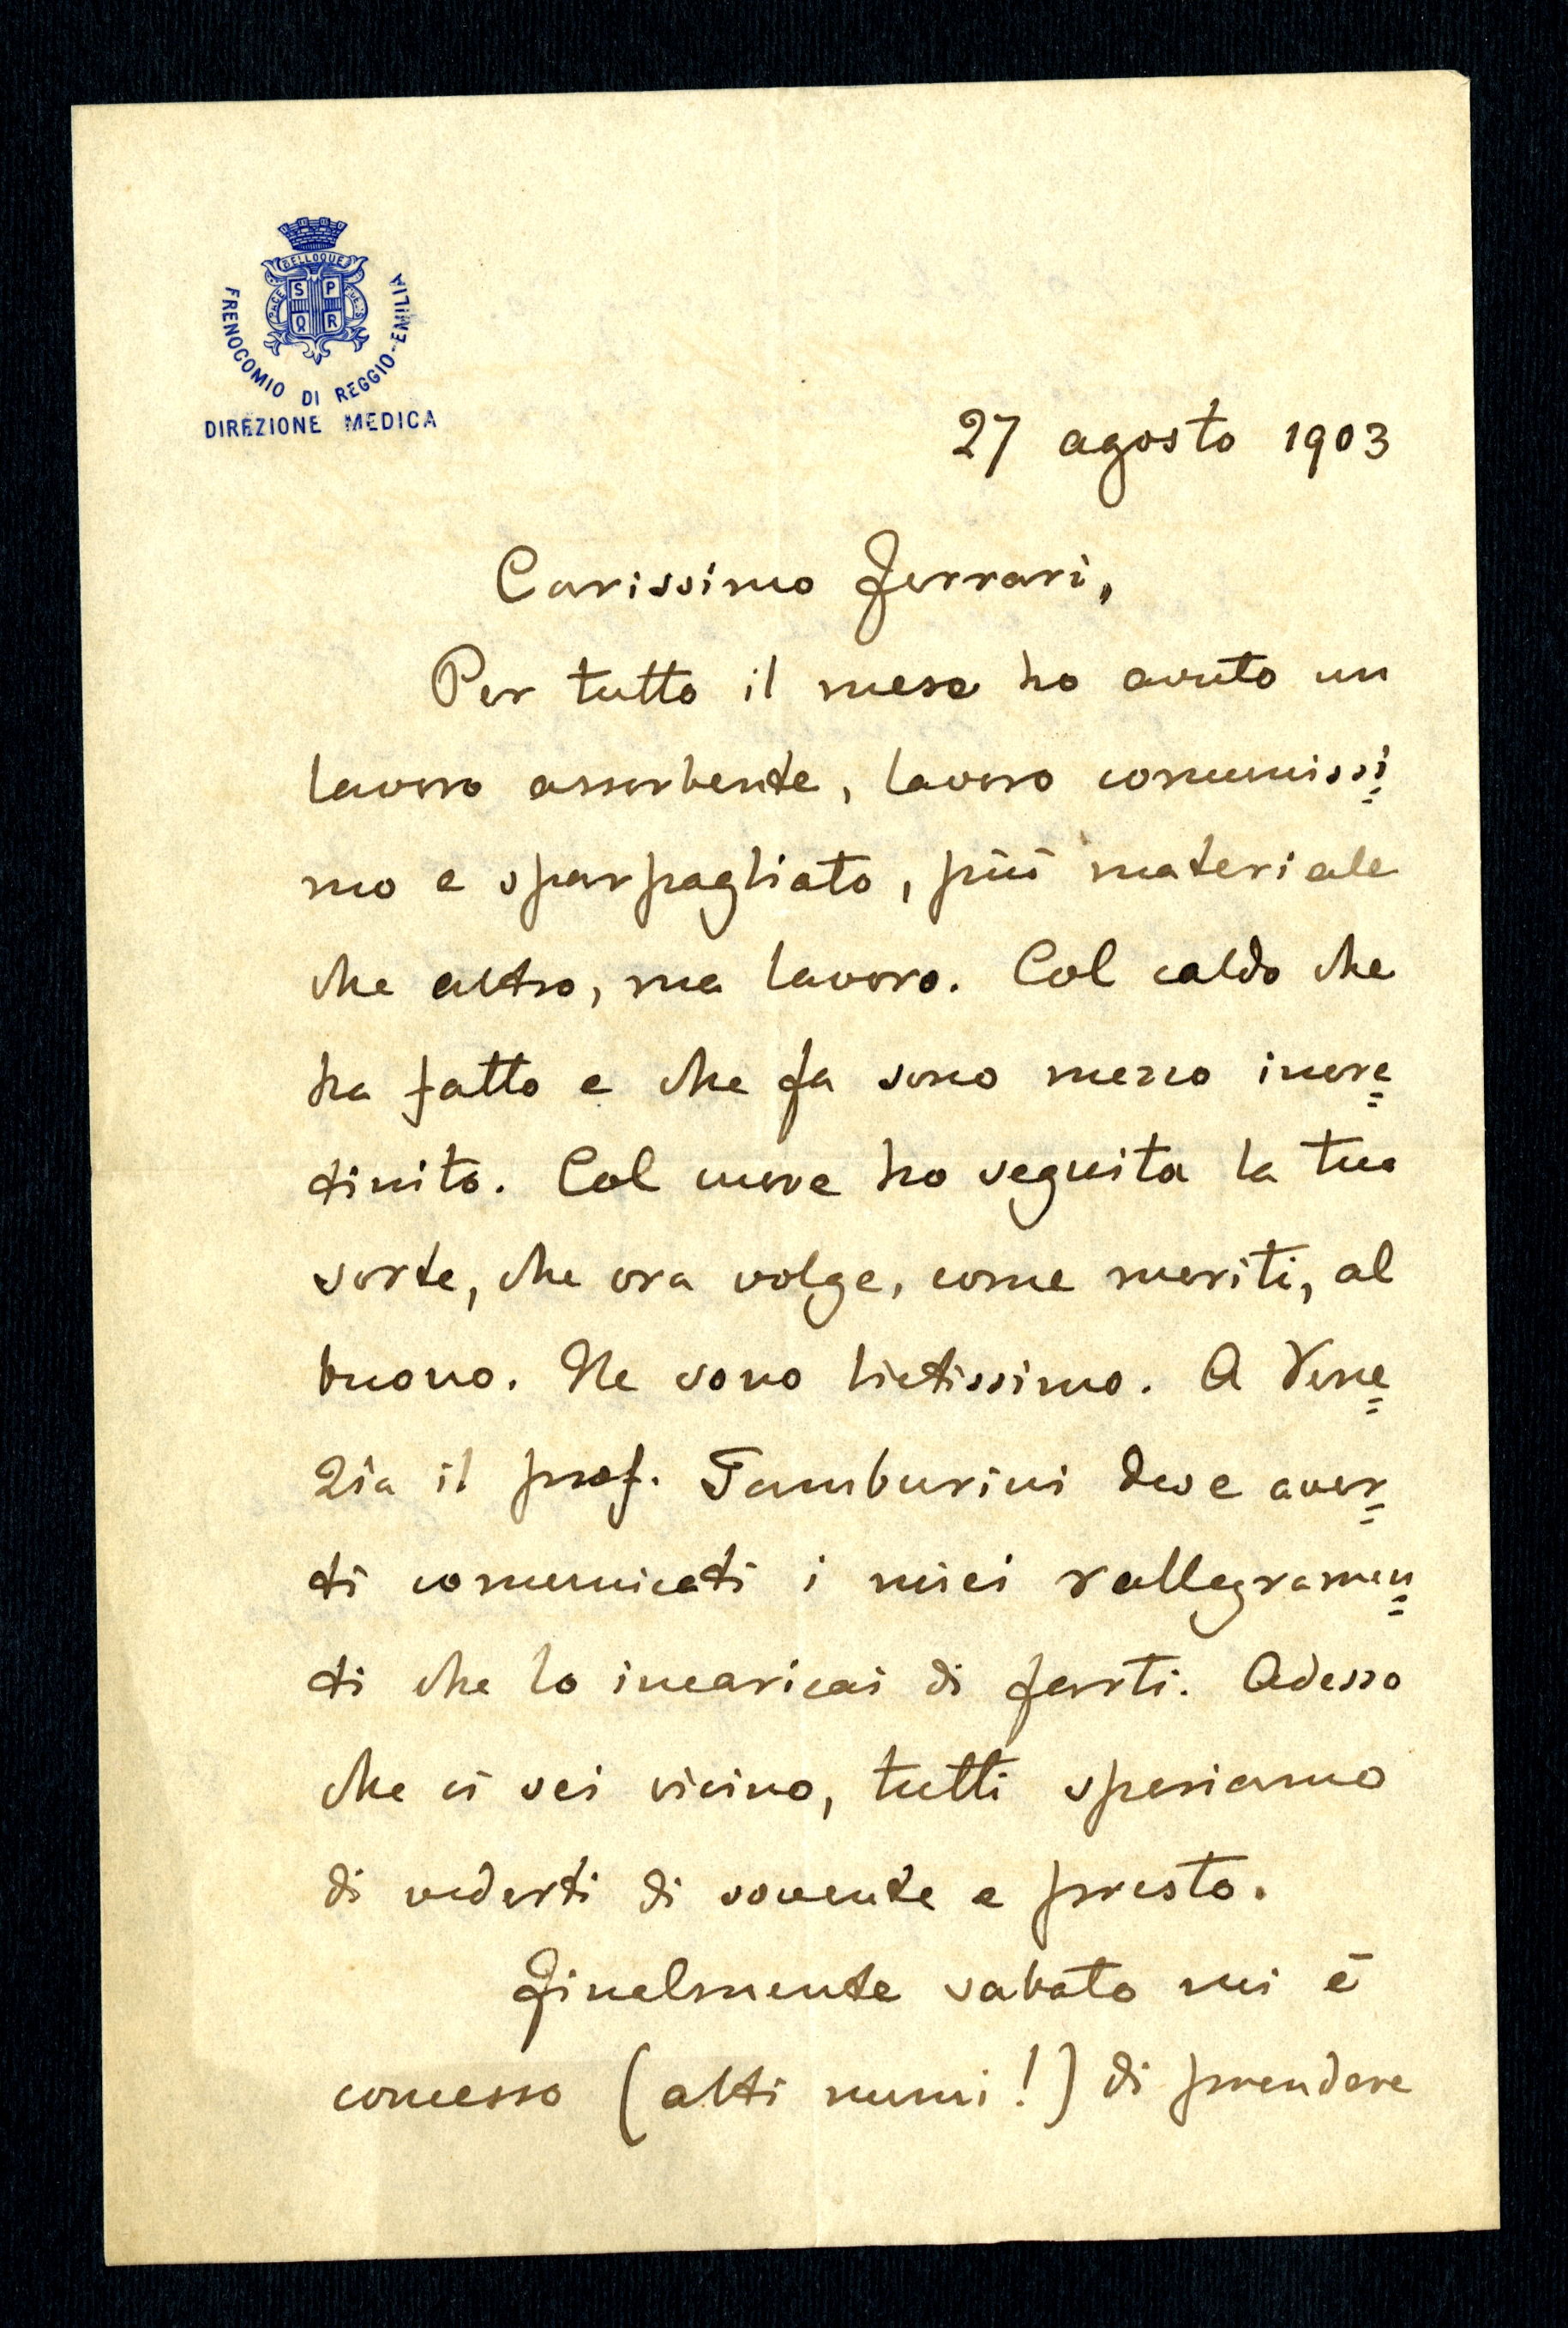 BELLOQUE
PACE
S P
Q R
FRENOCOMIO DI REGGIO-EMILIA
DIREZIONE MEDICA
27 agosto 1903
Carissimo Ferrari,
Per tutto il mese ho avuto un
lavoro assorbente, lavoro comunissi=
mo e sparpagliato, più materiale
che altro, ma lavoro. Col caldo che
ha fatto e che fa sono mezzo incre=
tinito. Col cuore ho seguita la tua
sorte, che ora volge, come meriti, al
buono. Ne sono lietissimo. A Vene=
zia il prof. Tamburini deve aver=
ti comunicati i miei rallegramen=
ti che lo incaricai di farti. Adesso
che ci sei vicino, tutti speriamo
di vederti di sovente e presto.
Finalmente sabato mi è
concesso (alti numi!) di prendere